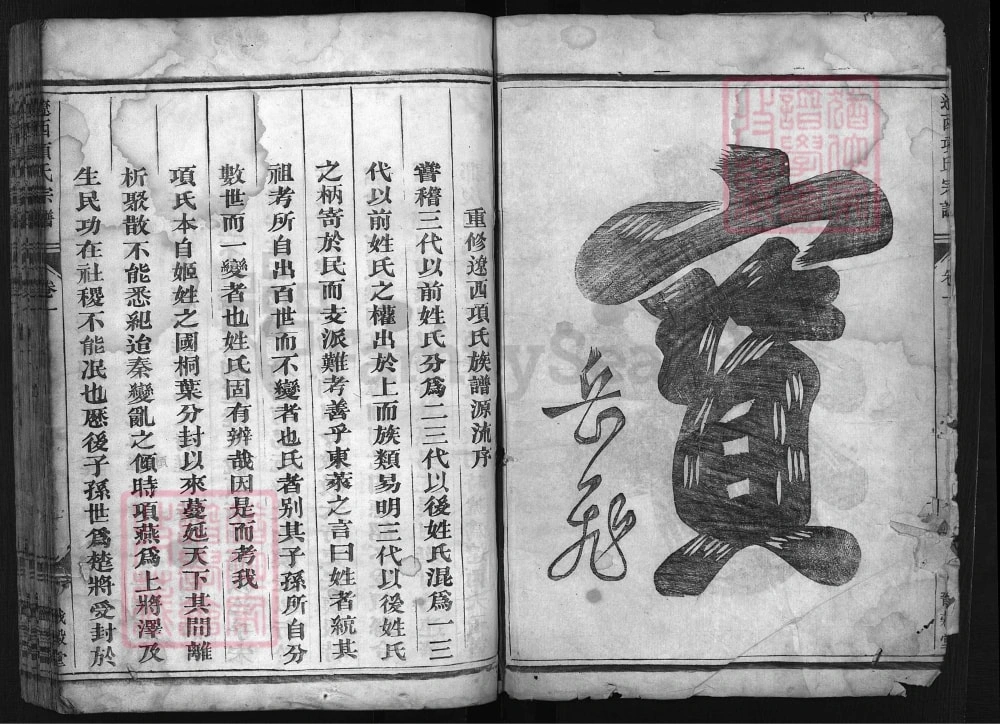 遼西項氏宗譜
卷一
岳飛
重修遼西項氏族譜源流序
嘗稽三代以前姓氏分爲二三代以後姓氏混爲一三
代以前姓氏之權出於上而族類易明三代以後姓氏
之柄寄於民而支派難考善乎東萊之言曰姓者統其
祖考所自出百世而不變者也氏者別其子孫所自分
數世而一變者也姓氏固有辨哉因是而考我
項氏本自姬姓之國桐葉分封以來蔓延天下其間離
析聚散不能悉紀迨秦變亂之傾時項燕爲上將澤及
生民功在社稷不能泯也歷後子孫世爲楚將愛封於
遼西項氏宗譜
卷一